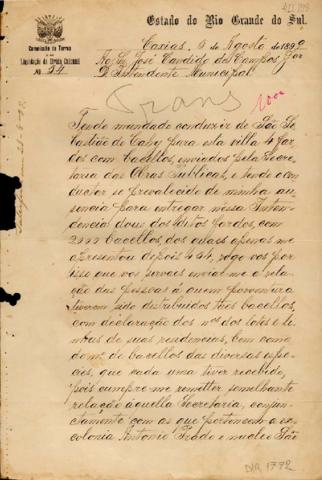 Estado do Rio Grande do Sul.
Commissão de Terras
e
Liquidação da Divida Colonial
Nº 54
Caxias, 5 de Agosto de 1892
Ao Snr. José Candido de Campos Jor
D. Intendente Municipal.
Trans
Tendo mandado conduzir de São Se
bastião do Cahy para esta villa 4 far
dos com bacellos, enviados pela Secre
taria das Obras Publicas, e tendo o con
ductor se prevalecido de minha au
sencia para entregar nessa Inten
dencia dous dos ditos fardos, com
bacellos, dos quaes apenas me
apresentou depois 484, rogo-vos por
isso que vos sirvaes enviar-me a rela
ção das pessoas á quem porventura
tiverem sido distribuidos taes bacellos,
com declaração dos nos. dos lotes e
de suas residencias, bem como
de bacellos das diversas espe
cies, que cada uma tiver recebido,
pois cumpre-me remetter semelhante
relação áquella Secretaria, conjun
ctamente com as que pertencem a ex-
colonia Antonio Prado e nucleo São
1772